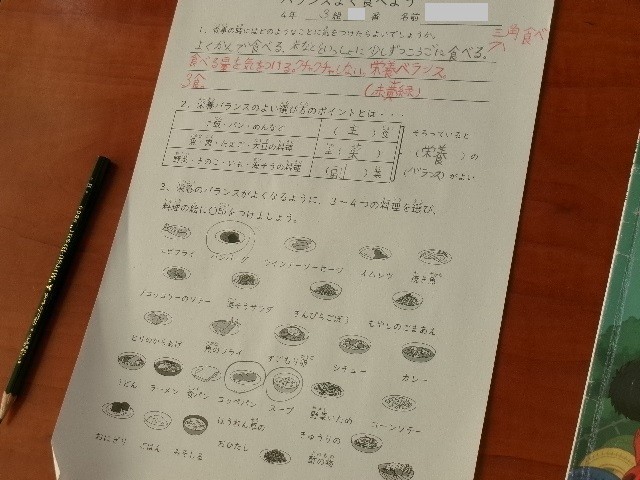 バランスよく食べよう
4年 3組 番 名前
1、食事の時にはどのようなことに気をつけたらよいでしょうか。
よくかんで食べる。
少しずつ
食べる。
三角食べ
食べる量を気をつける。クチャクチャしない。栄養バランス。
3食。 (赤黄緑)
2、栄養バランスのよい選びかたのポイントとは・・・
ご飯・パン・めんなど (主)食
主(菜)
野菜・きのこ・いも・海そうの料理 (副)菜
そろっていると
(栄養)の
(バランス)がよい
3、栄養のバランスがよくなるように、3~4つの料理を選び、
料理の絵に○印をつけましょう。
えびフライ ハンバーグ ウインナーソーセージ オムレツ 焼き魚
海そうサラダ きんぴらごぼう もやしのごまあえ
とりのからあげ 魚のフライ シチュー カレー
うどん ラーメン 食パン コッペパン スープ 野菜いため コーンソテー
おにぎり ごはん みそしる ほうれん草の おひたし きゅうりの 酢の物